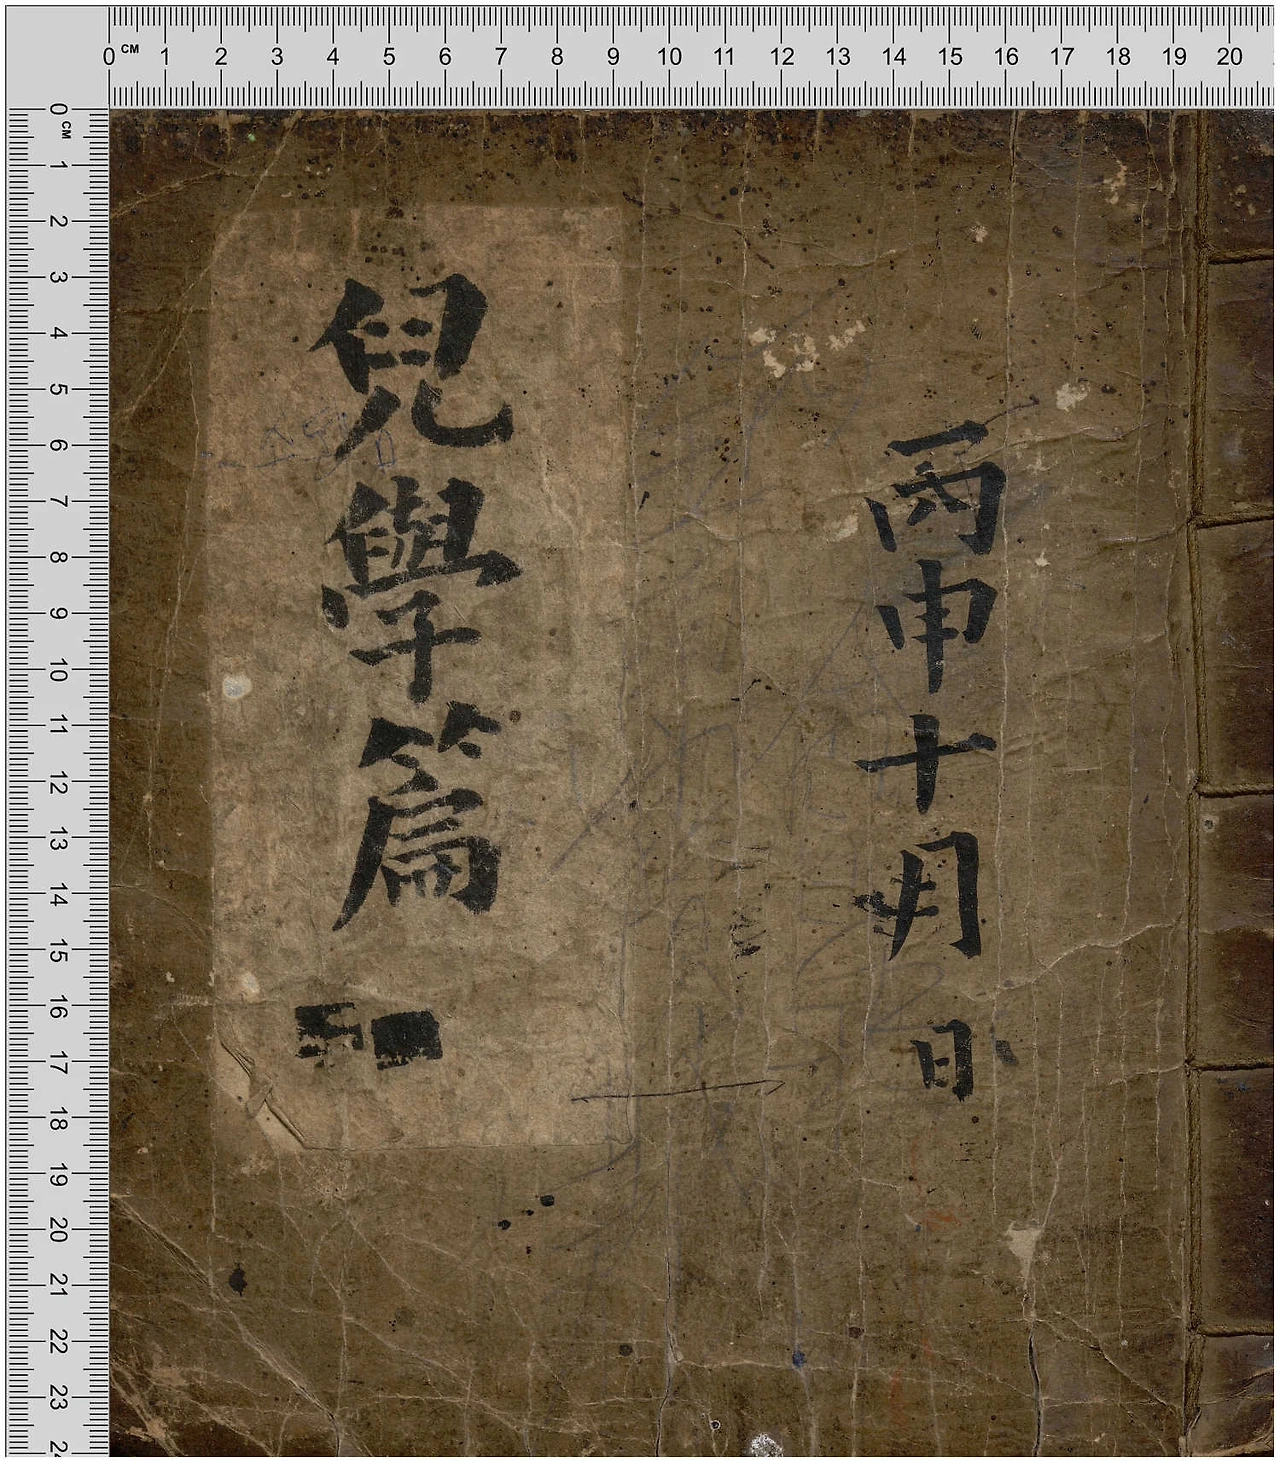 0 CM 1 2 3 4 5 6 7 8 9 10 11 12 13 14 15 16 17 18 19 20
0 CM 1 2 3 4 5 6 7 8 9 10 11 12 13 14 15 16 17 18 19 20 21 22 23 24
丙申十月 日
兒學篇